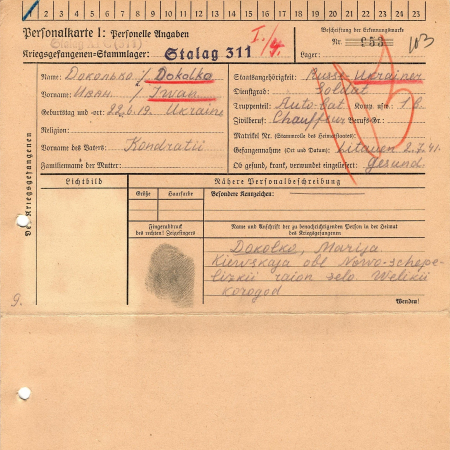 1 2 3 4 5 6 7 8 9 10 11 12 13 14 15 16 17 18 19 20 21 22 23
Personalkarte I: Personelle Angaben
I./4.
Beschriftung der Erkennungsmarke
Stalag XI C (311)
Nr. 953
103
Kriegsgefangenen-Stammlager: Stalag 311
Lager:
Des Kriegsgefangenen
Name: Доколько / Dokolko
Vorname: Иван / Iwan
Geburtstag und -ort: 22.6.19. Ukraine
Religion:
Vorname des Vaters: Kondratii
Familienname der Mutter:
Staatsangehörigkeit: Russe Ukrainer
Dienstgrad: Soldat
Truppenteil: Auto-bat Komp. usw.: 1 b.
Zivilberuf: Chauffeur Berufs-Gr.:
Matrikel Nr. (Stammrolle des Heimatstaates):
Gefangennahme (Ort und Datum): Litauen 2.7.41.
Ob gesund, krank, verwundet eingeliefert: gesund
Lichtbild
Nähere Personalbeschreibung
Größe
Haarfarbe
Besondere Kennzeichen:
Fingerabdruck
des rechten! Zeigefingers
Name und Anschrift der zu benachrichtigenden Person in der Heimat
des Kriegsgefangenen
Dokolko, Marija
Kiewskaja obl Nowo-schepe-
lizkii raion selo Welikii
korogod
9.
Wenden!